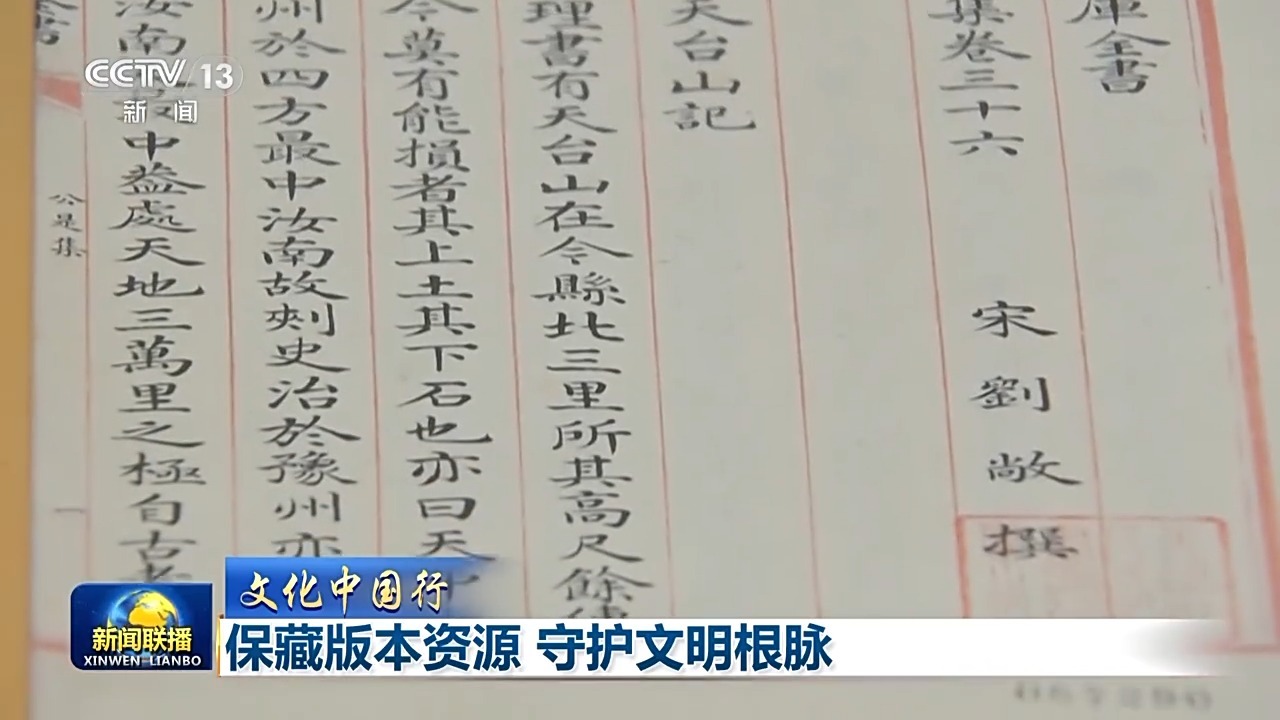 庫全書
集卷三十六 宋劉敞撰
天台山記
理書有天台山在今縣北三里所其高尺餘
今莫有能損者其上土其下石也亦曰天
州於四方最中汝南故刾史治於豫州亦
汝南
中葢處天地三萬里之極自古
公是集
一
CCTV 13
新闻
文化中国行
新闻联播
XINWEN LIANBO
保藏版本资源 守护文明根脉